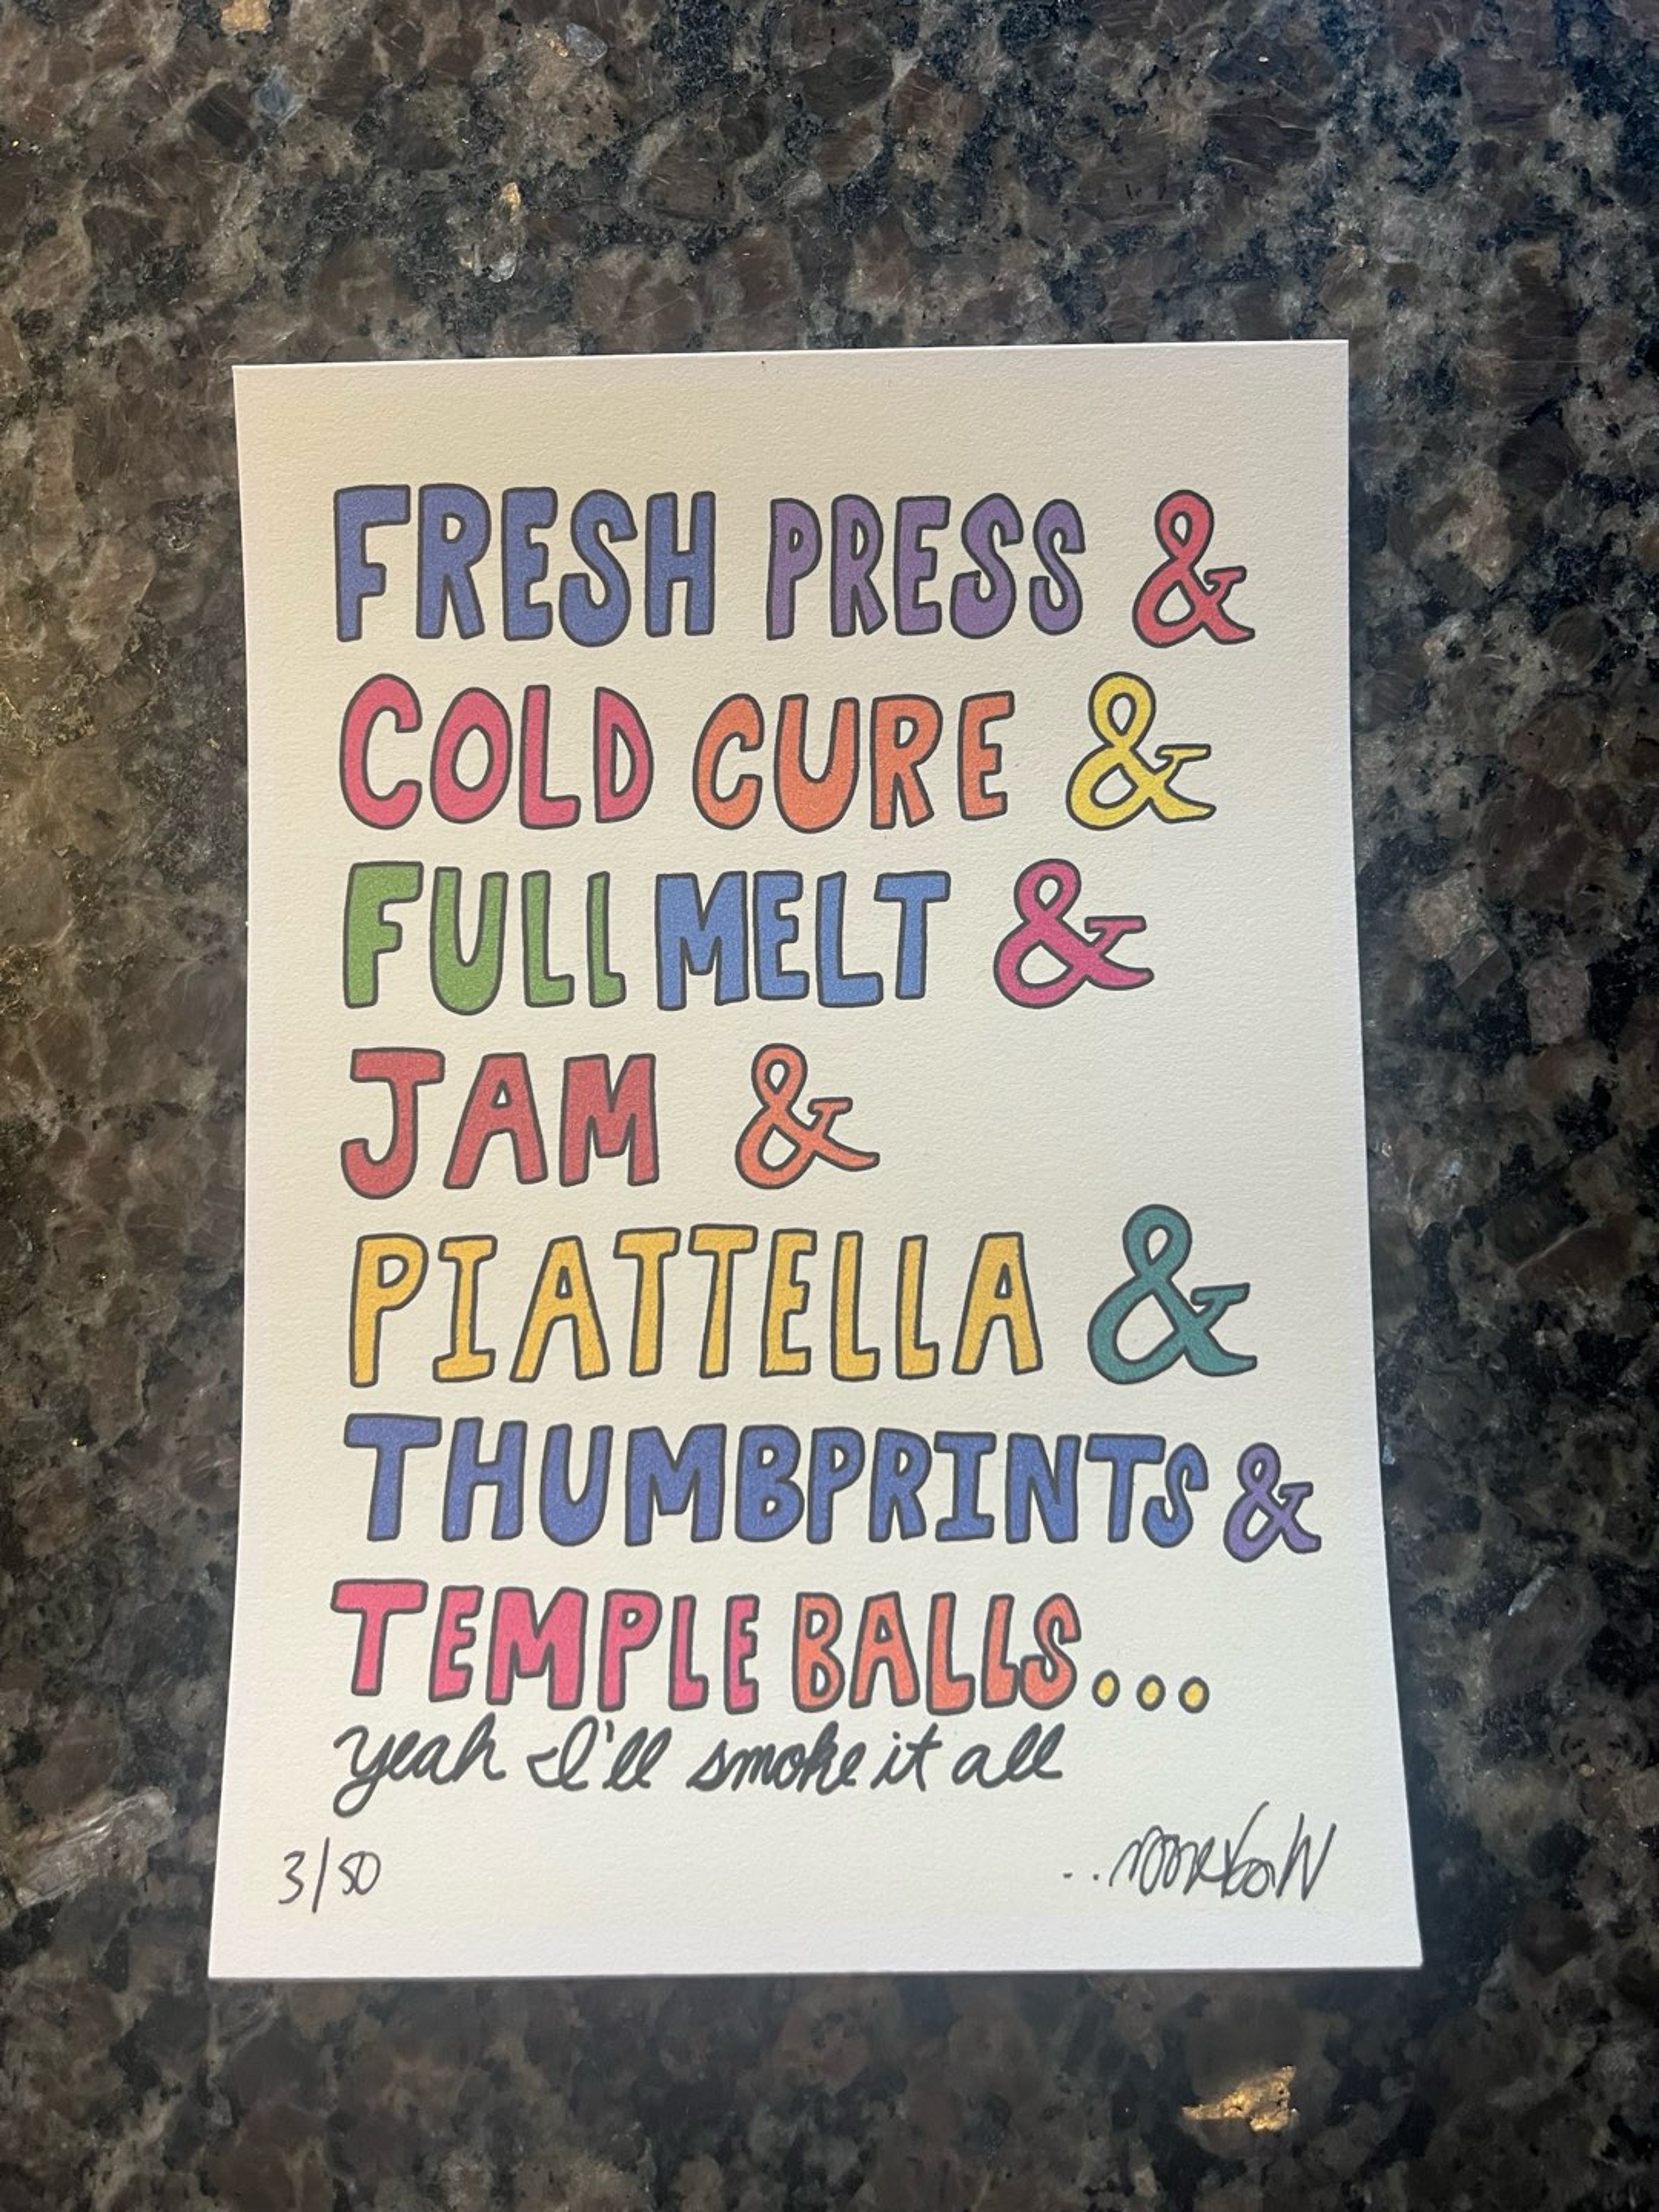 FRESH PRESS &
COLD CURE &
FULL MELT &
JAM &
PIATTELLA &
THUMBPRINTS &
TEMPLE BALLS...
yeah I'll smoke it all
3/50